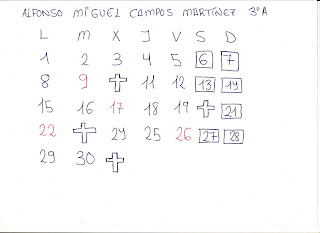 ALFONSO MIGUEL CAMPOS MARTÍNEZ 3ºA
L M X J V S D
1 2 3 4 5 6 7
8 9 11 12 13 14
15 16 17 18 19 21
22 24 25 26 27 28
29 30